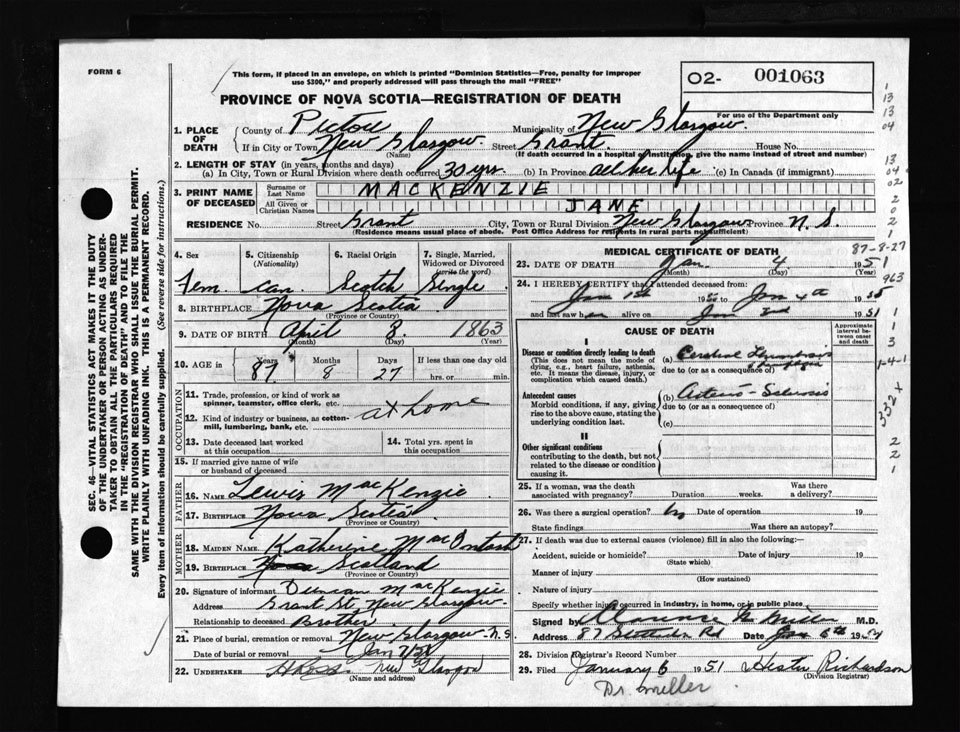 FORM 6
This form, if placed in an envelope, on which is printed "Dominion Statistics—Free, penalty for improper
use $300," and properly addressed will pass through the mail "FREE"
O2- 001063
For use of the Department only
PROVINCE OF NOVA SCOTIA—REGISTRATION OF DEATH
SEC. 46—VITAL STATISTICS ACT MAKES IT THE DUTY
OF THE UNDERTAKER OR PERSON ACTING AS UNDER-
TAKER TO OBTAIN ALL THE PARTICULARS REQUIRED
IN THE "REGISTRATION OF DEATH" AND TO FILE THE
SAME WITH THE DIVISION REGISTRAR WHO SHALL ISSUE THE BURIAL PERMIT.
WRITE PLAINLY WITH UNFADING INK. THIS IS A PERMANENT RECORD.
Every item of information should be carefully supplied. (See reverse side for instructions.)
1. PLACE OF DEATH County of Pictou Municipality of New Glasgow.
If in City or Town New Glasgow. Street Grant. House No.
(Name) (If death occurred in a hospital or institution, give the name instead of street and number)
2. LENGTH OF STAY (in years, months and days)
(a) In City, Town or Rural Division where death occurred 30 yrs. (b) In Province all her life (c) In Canada (if immigrant)
3. PRINT NAME OF DECEASED Surname or Last Name MACKENZIE
All Given or Christian Names JANE
RESIDENCE No. Street Grant City, Town or Rural Division New Glasgow Province N.S.
(Residence means usual place of abode. Post Office Address for residents in rural parts not sufficient)
4. Sex 5. Citizenship (Nationality) 6. Racial Origin 7. Single, Married, Widowed or Divorced (write the word)
Fem. Can. Scotch Single
8. BIRTHPLACE Nova Scotia
(Province or Country)
9. DATE OF BIRTH April 8 1863
(Month) (Day) (Year)
10. AGE Years Months Days If less than one day old
87 8 27 hrs. or min.
OCCUPATION
11. Trade, profession, or kind of work as
spinner, teamster, office clerk, etc.
at home
12. Kind of industry or business, as cotton-
mill, lumbering, bank, etc.
13. Date deceased last worked at this occupation
14. Total yrs. spent in this occupation
15. If married give name of wife
or husband of deceased
FATHER
16. NAME Lewis MacKenzie
17. BIRTHPLACE Nova Scotia
(Province or Country)
MOTHER
18. MAIDEN NAME Katherine MacIntosh
19. BIRTHPLACE Scotland
(Province or Country)
20. Signature of informant Duncan MacKenzie
Address Grant St. New Glasgow.
Relationship to deceased Brother
21. Place of burial, cremation or removal New Glasgow N.S
Date of burial or removal Jan 7/51
22. UNDERTAKER New Glasgow
(Name and address)
MEDICAL CERTIFICATE OF DEATH
23. DATE OF DEATH Jan 4 1951
(Month) (Day) (Year)
24. I HEREBY CERTIFY that I attended deceased from
Jan 1st 19 to Jan 4th 19
and last saw h er alive on Jan 2nd 1951
CAUSE OF DEATH
Approximate interval between onset and death
I
Disease or condition directly leading to death (a) Cerebral
(This does not mean the mode of
dying, e.g., heart failure, asthenia,
etc. It means the disease, injury, or
complication which caused death.)
due to (or as a consequence of)
Antecedent causes (b) Arterio-Sclerosis
Morbid conditions, if any, giving
rise to the above cause, stating the
underlying condition last.
due to (or as a consequence of)
(c)
II
Other significant conditions
contributing to the death, but not
related to the disease or condition
causing it.
25. If a woman, was the death associated with pregnancy? Duration weeks. Was there a delivery?
26. Was there a surgical operation? Date of operation 19
State findings Was there an autopsy?
27. If death was due to external causes (violence) fill in also the following:—
Accident, suicide or homicide? Date of injury 19
(State which)
Manner of injury
(How sustained)
Nature of injury
Specify whether injury occurred in industry, in home, or in public place
Signed by Clarence Miller M.D.
Address 87 Rd Date Jan 6th 19
28. Division Registrar's Record Number
29. Filed January 6 1951 Hester Richardson
(Division Registrar)
Dr. Miller
87-8-27
963
332 +